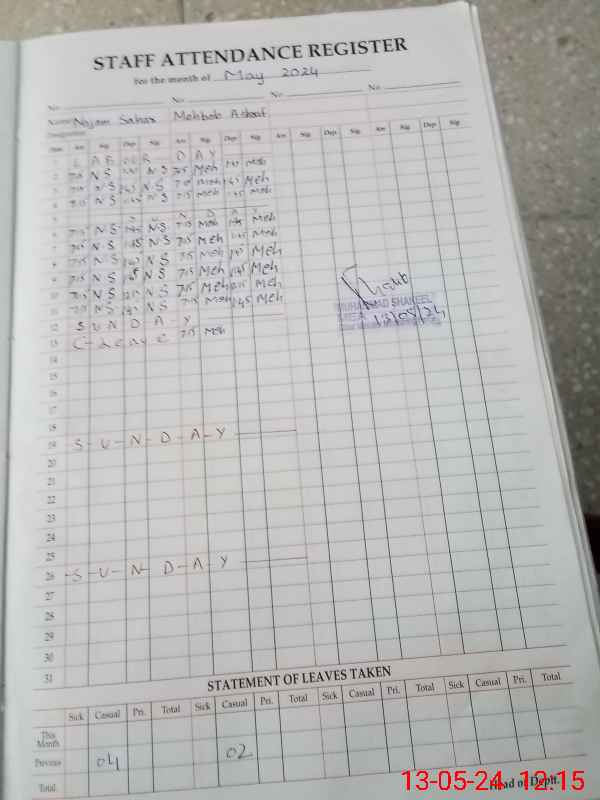 STAFF ATTENDANCE REGISTER
For the month of May 2024
No No No No
Name Najam Sahar Mehbob Ashraf
Designation
Date Arr Sig Dep Sig Arr Sig Dep Sig Arr Sig Dep Sig Arr Sig Dep Sig
1 LABOUR DAY
2 715 NS 145 NS 715 Meh 145 Meh
3 715 NS 145 NS 715 Meh 145 Meh
4 715 NS 145 NS 715 Meh 145 Meh
5 SUNDAY
6 715 NS 145 NS 715 Meh 145 Meh
7 715 NS 145 NS 715 Meh 145 Meh
8 715 NS 145 NS 715 Meh 145 Meh
9 715 NS NS 715 Meh 145 Meh
10 715 NS NS 715 Meh Meh
11 715 NS 145 NS 715 Meh 145 Meh
12 SUNDAY
13 C-Leave 715 Meh
MUHAMMAD SHAKEEL
13/05/24
14
15
16
17
18
19 S-U-N-D-A-Y
20
21
22
23
24
25
26 -S-U-N-D-A-Y
27
28
29
30
31
STATEMENT OF LEAVES TAKEN
Sick Casual Pri. Total Sick Casual Pri. Total Sick Casual Pri. Total Sick Casual Pri. Total
This Month
Previous 04 02
Total
Head of Deptt.
13-05-24 12:15